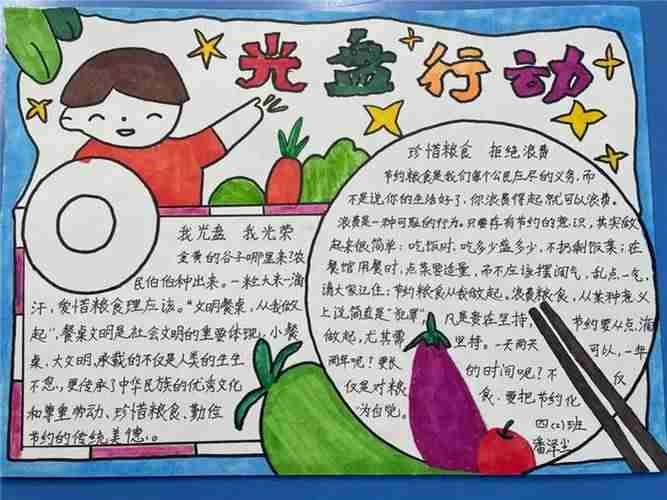 光盘行动
我光盘 我光荣
金黄的谷子哪里来?农
民伯伯种出来。一粒大米一滴
汗,爱惜粮食理应该。"文明餐桌,从我做
起",餐桌文明是社会文明的重要体现,小餐
桌、大文明,承载的不仅是人类的生生
不息,更传承了中华民族的优秀文化
和尊重劳动、珍惜粮食、勤俭
节约的传统美德。
珍惜粮食 拒绝浪费
节约粮食是我们每个公民应尽的义务,而
不是说你的生活好了,你浪费得起就可以浪费。
浪费是一种可耻的行为。只要存有节约的意识,其实做
起来很简单:吃饭时吃多少盛多少,不扔剩饭菜;在
餐馆用餐时,点菜要适量,而不应该摆阔气,乱点一气,
请大家记住:节约粮食从我做起。浪费粮食,从某种意义
上说简直是"犯罪"。凡是贵在坚持,节约要从点滴
做起,尤其需坚持。一天两天可以,一年
两年呢?更长的时间呢?不仅
仅是对粮食,要把节约化
为自呢。
四(2)班
潘泽